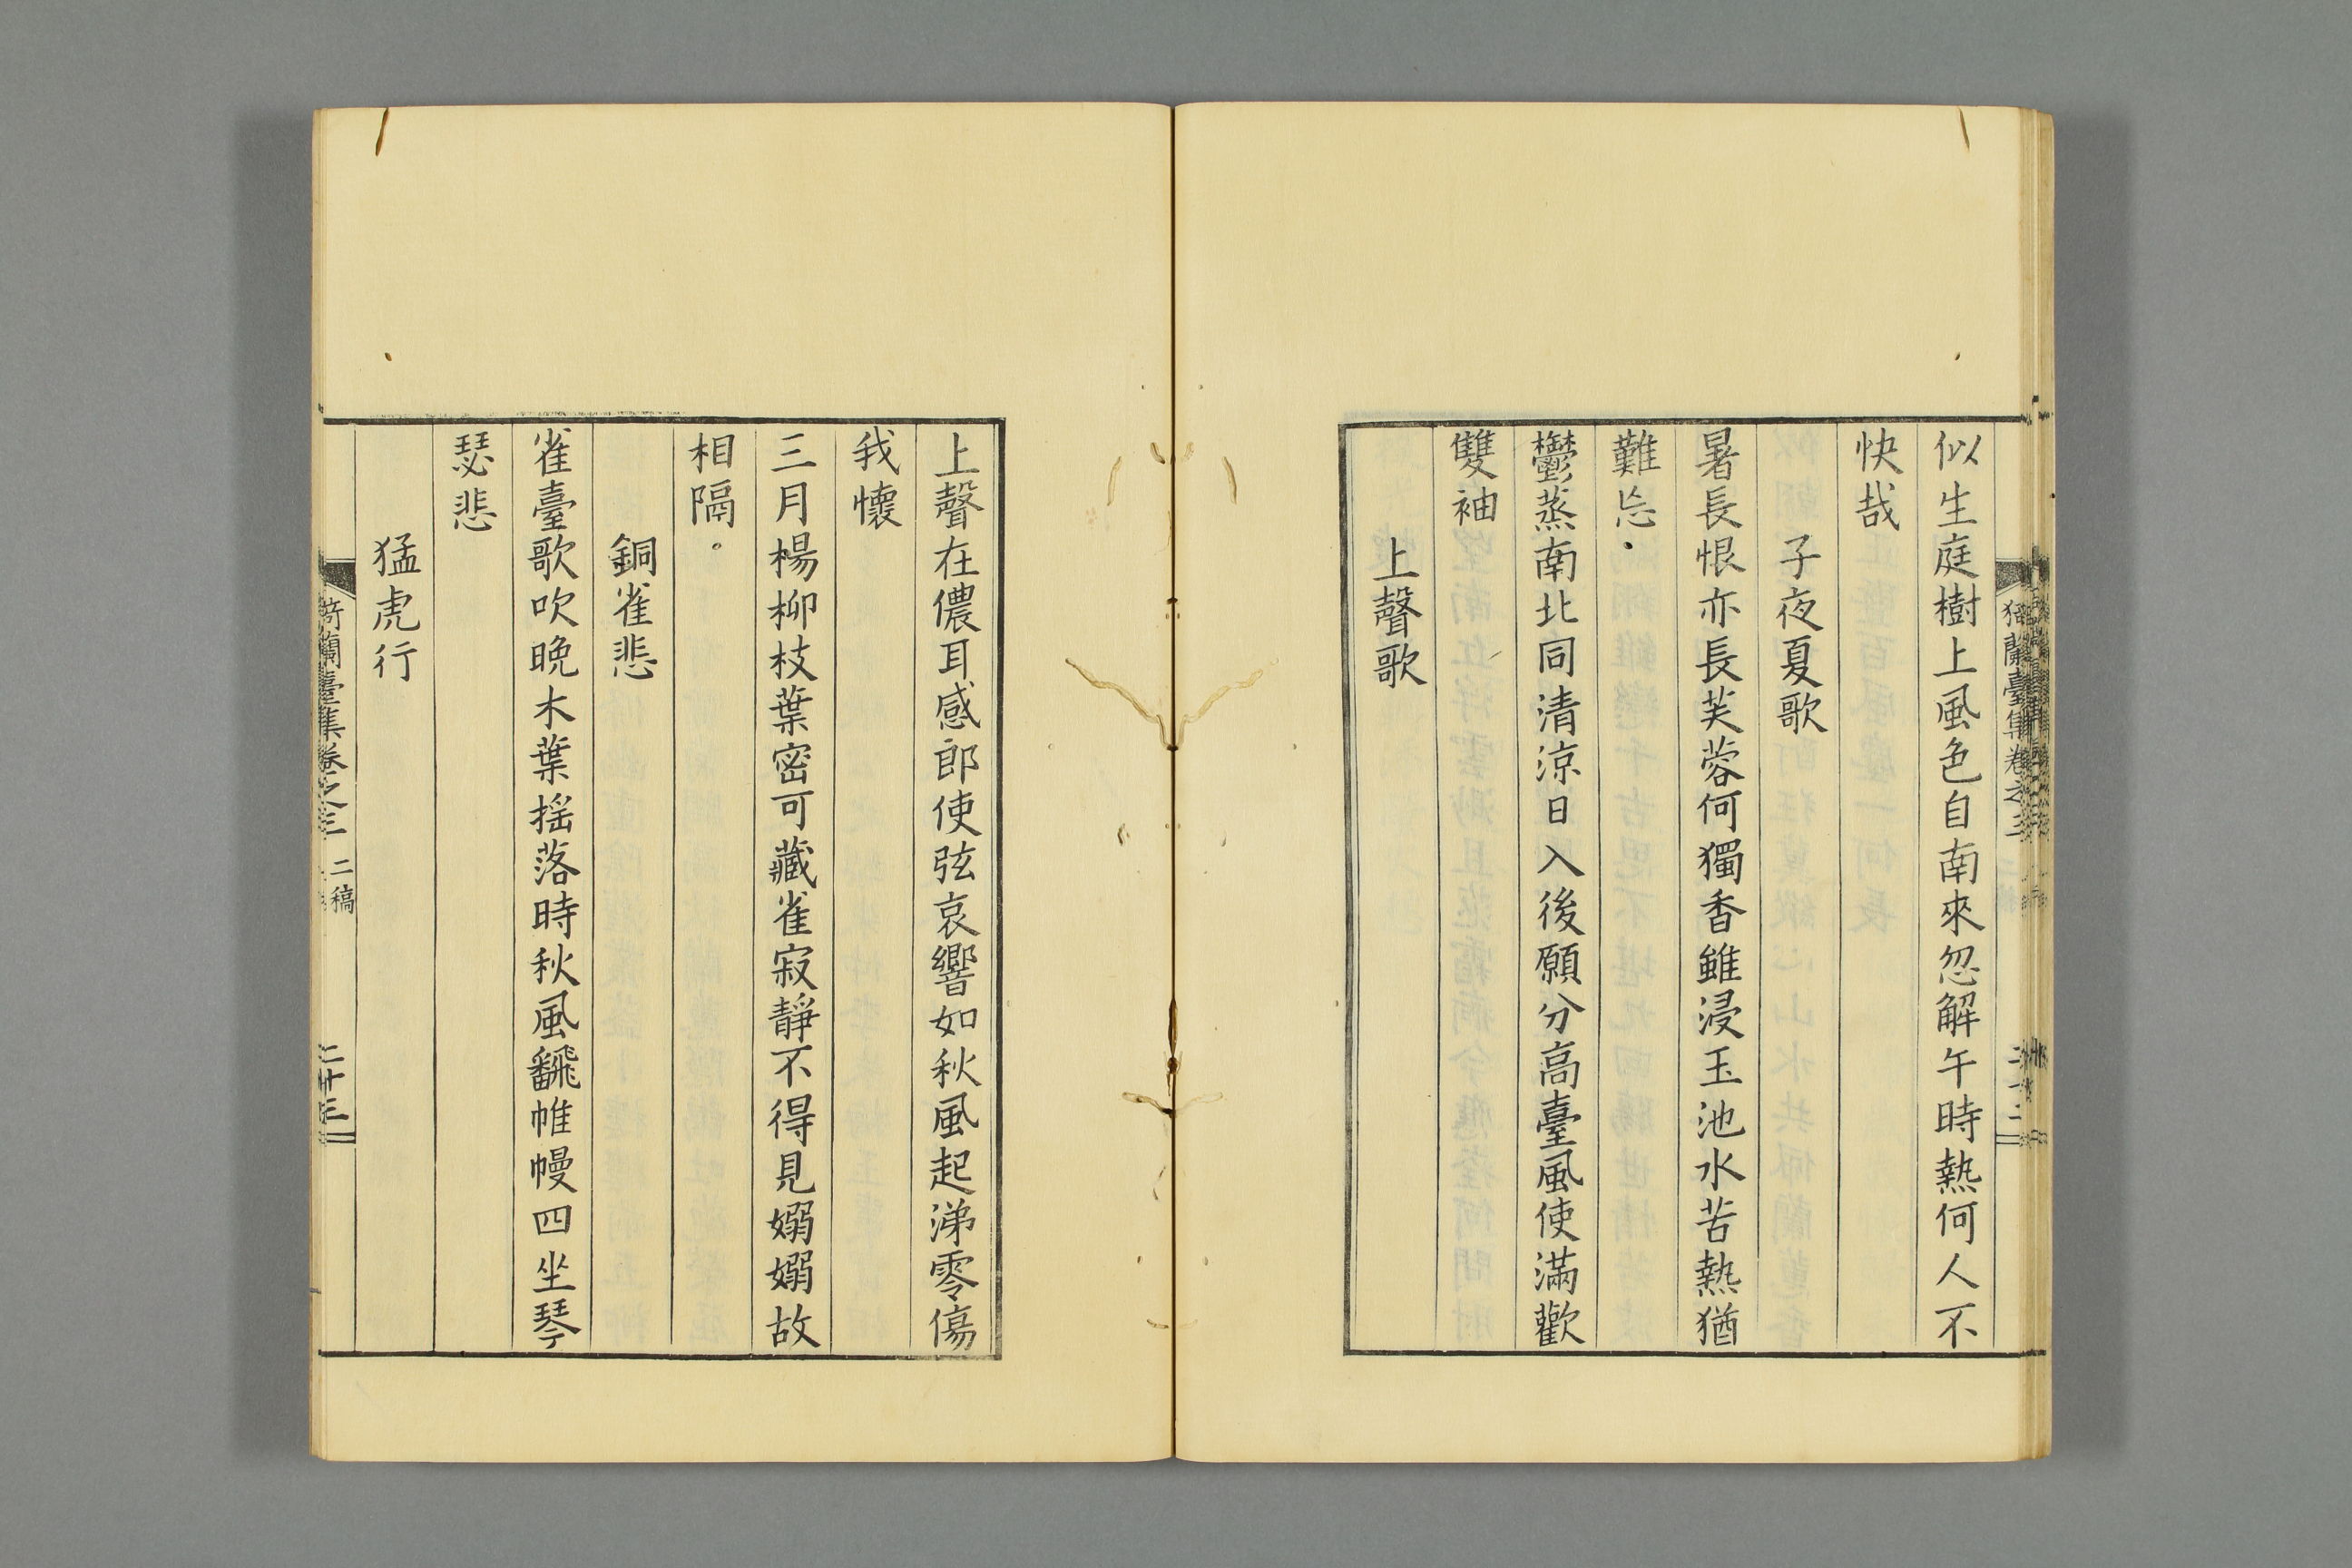 似生庭樹上風色自南來忽解午時熱何人不
快哉
子夜夏歌
暑長恨亦長芙蓉何獨香雖浸玉池水苦熱猶
難忘
鬱蒸南北同清涼日入後願分高臺風使滿歡
雙袖
上聲歌
上聲在儂耳感郎使弦哀響如秋風起涕零傷
我懷
三月楊柳枝葉密可藏雀寂靜不得見嫋嫋故
相隔。
銅雀悲
雀臺歌吹晚木葉揺落時秋風飜帷幔四坐琴
瑟悲
猛虎行
猗蘭臺集卷之三 二稿